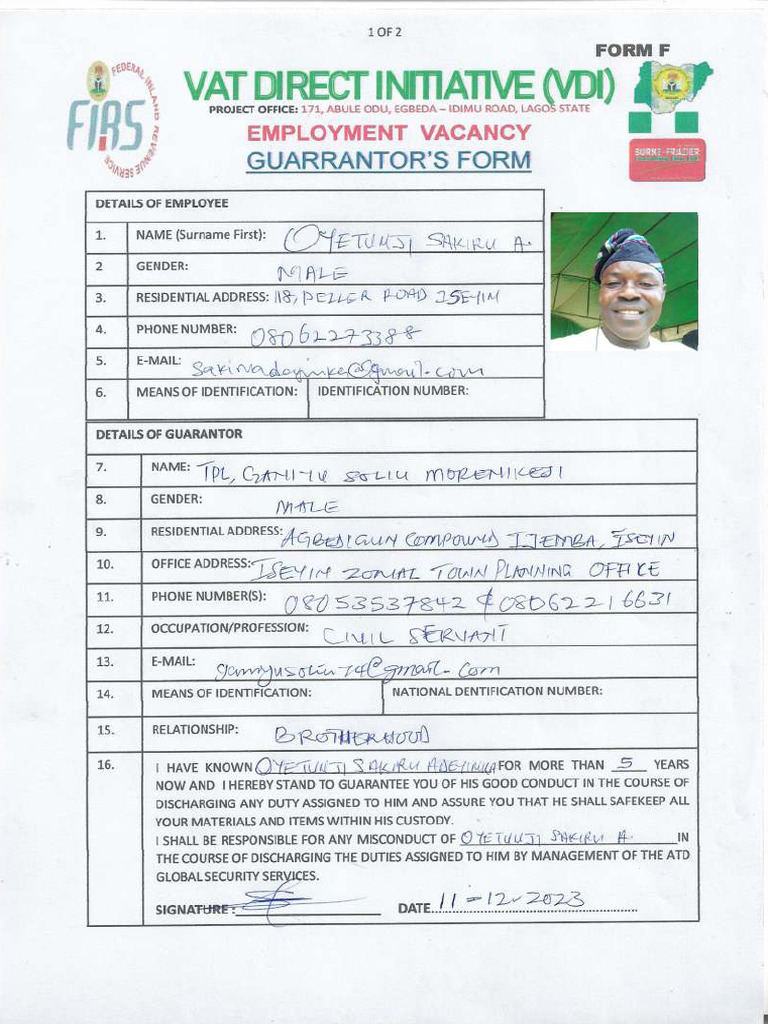 1 OF 2
FORM F
FEDERAL INLAND REVENUE SERVICE
FIRS
VAT DIRECT INITIATIVE (VDI)
PROJECT OFFICE: 171, ABULE ODU, EGBEDA – IDIMU ROAD, LAGOS STATE
EMPLOYMENT VACANCY
GUARRANTOR'S FORM
BURKE-FRAZIER
DETAILS OF EMPLOYEE
1. NAME (Surname First): OYETUNJI SAKIRU A.
2 GENDER: MALE
3. RESIDENTIAL ADDRESS: 118, PELLER ROAD ISEYIN
4. PHONE NUMBER: 08062273388
5. E-MAIL: sakiruadeyinka@gmail.com
6. MEANS OF IDENTIFICATION: IDENTIFICATION NUMBER:
DETAILS OF GUARANTOR
7. NAME: TPL, GANIYU SOLIU MORENIKEJI
8. GENDER: MALE
9. RESIDENTIAL ADDRESS: AGBEDIGUN COMPOUND IJEMBA, ISEYIN
10. OFFICE ADDRESS: ISEYIN ZONAL TOWN PLANNING OFFICE
11. PHONE NUMBER(S): 08053537842 & 08062216631
12. OCCUPATION/PROFESSION: CIVIL SERVANT
13. E-MAIL: ganiyusoliu74@gmail.com
14. MEANS OF IDENTIFICATION: NATIONAL DENTIFICATION NUMBER:
15. RELATIONSHIP: BROTHERHOOD
16. I HAVE KNOWN OYETUNJI SAKIRU ADEYINKA FOR MORE THAN 5 YEARS
NOW AND I HEREBY STAND TO GUARANTEE YOU OF HIS GOOD CONDUCT IN THE COURSE OF
DISCHARGING ANY DUTY ASSIGNED TO HIM AND ASSURE YOU THAT HE SHALL SAFEKEEP ALL
YOUR MATERIALS AND ITEMS WITHIN HIS CUSTODY.
I SHALL BE RESPONSIBLE FOR ANY MISCONDUCT OF OYETUNJI SAKIRU A. IN
THE COURSE OF DISCHARGING THE DUTIES ASSIGNED TO HIM BY MANAGEMENT OF THE ATD
GLOBAL SECURITY SERVICES.
SIGNATURE : DATE 11-12-2023